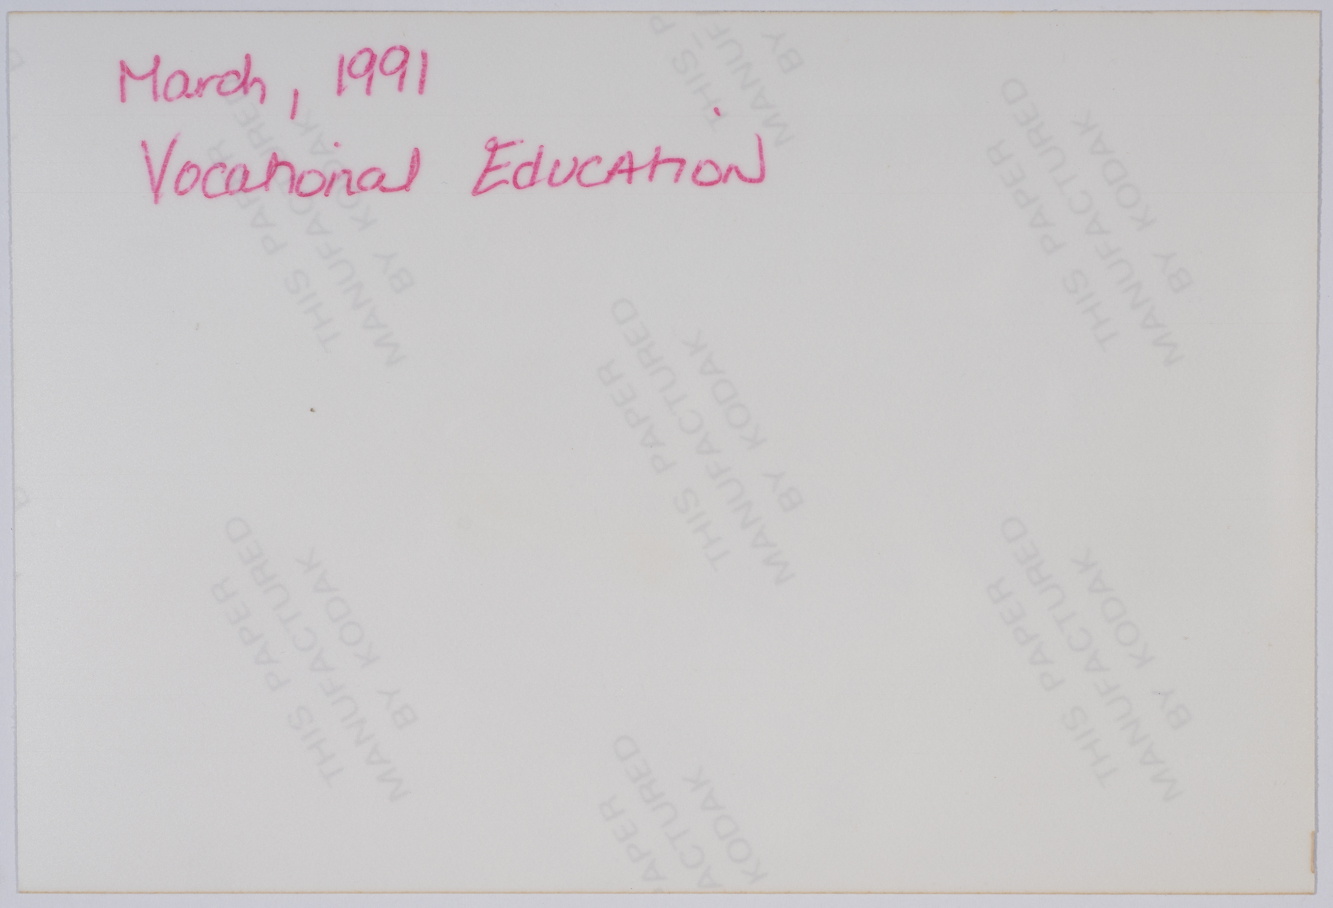 March, 1991
Vocational Education
THIS PAPER
MANUFACTURED
BY KODAK
THIS P
MANUF
BY
THIS PAPER
MANUFACTURED
BY KODAK
THIS PAPER
MANUFACTURED
BY KODAK
THIS PAPER
MANUFACTURED
BY KODAK
THIS PAPER
MANUFACTURED
BY KODAK
APER
ACTURED
KODAK